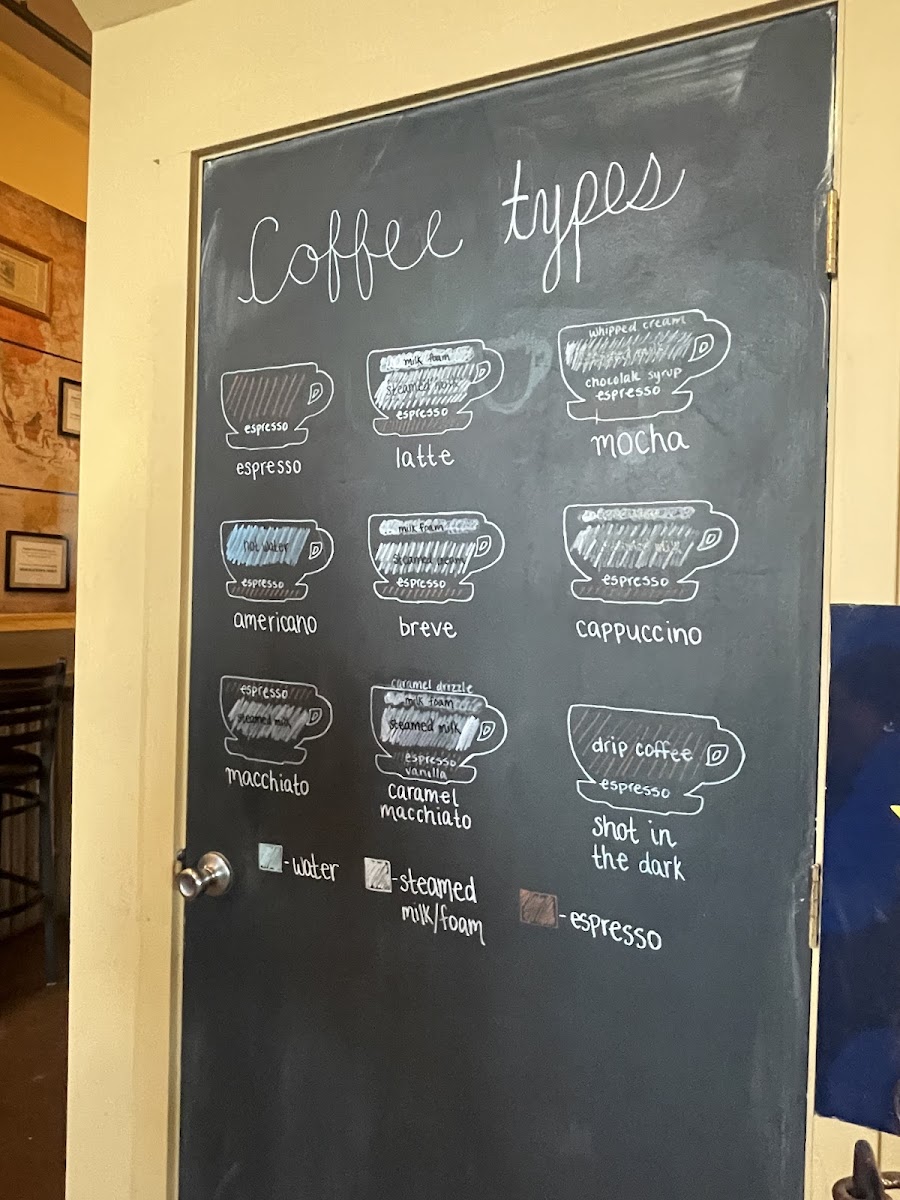 Coffee types
espresso
espresso
milk foam
steamed milk
espresso
latte
whipped cream
chocolate syrup
espresso
mocha
hot water
espresso
americano
milk foam
steamed cream
espresso
breve
steamed milk
espresso
cappuccino
espresso
steamed milk
macchiato
caramel drizzle
milk foam
steamed milk
espresso
vanilla
caramel
macchiato
drip coffee
espresso
shot in
the dark
-water
-steamed
milk/foam
-espresso